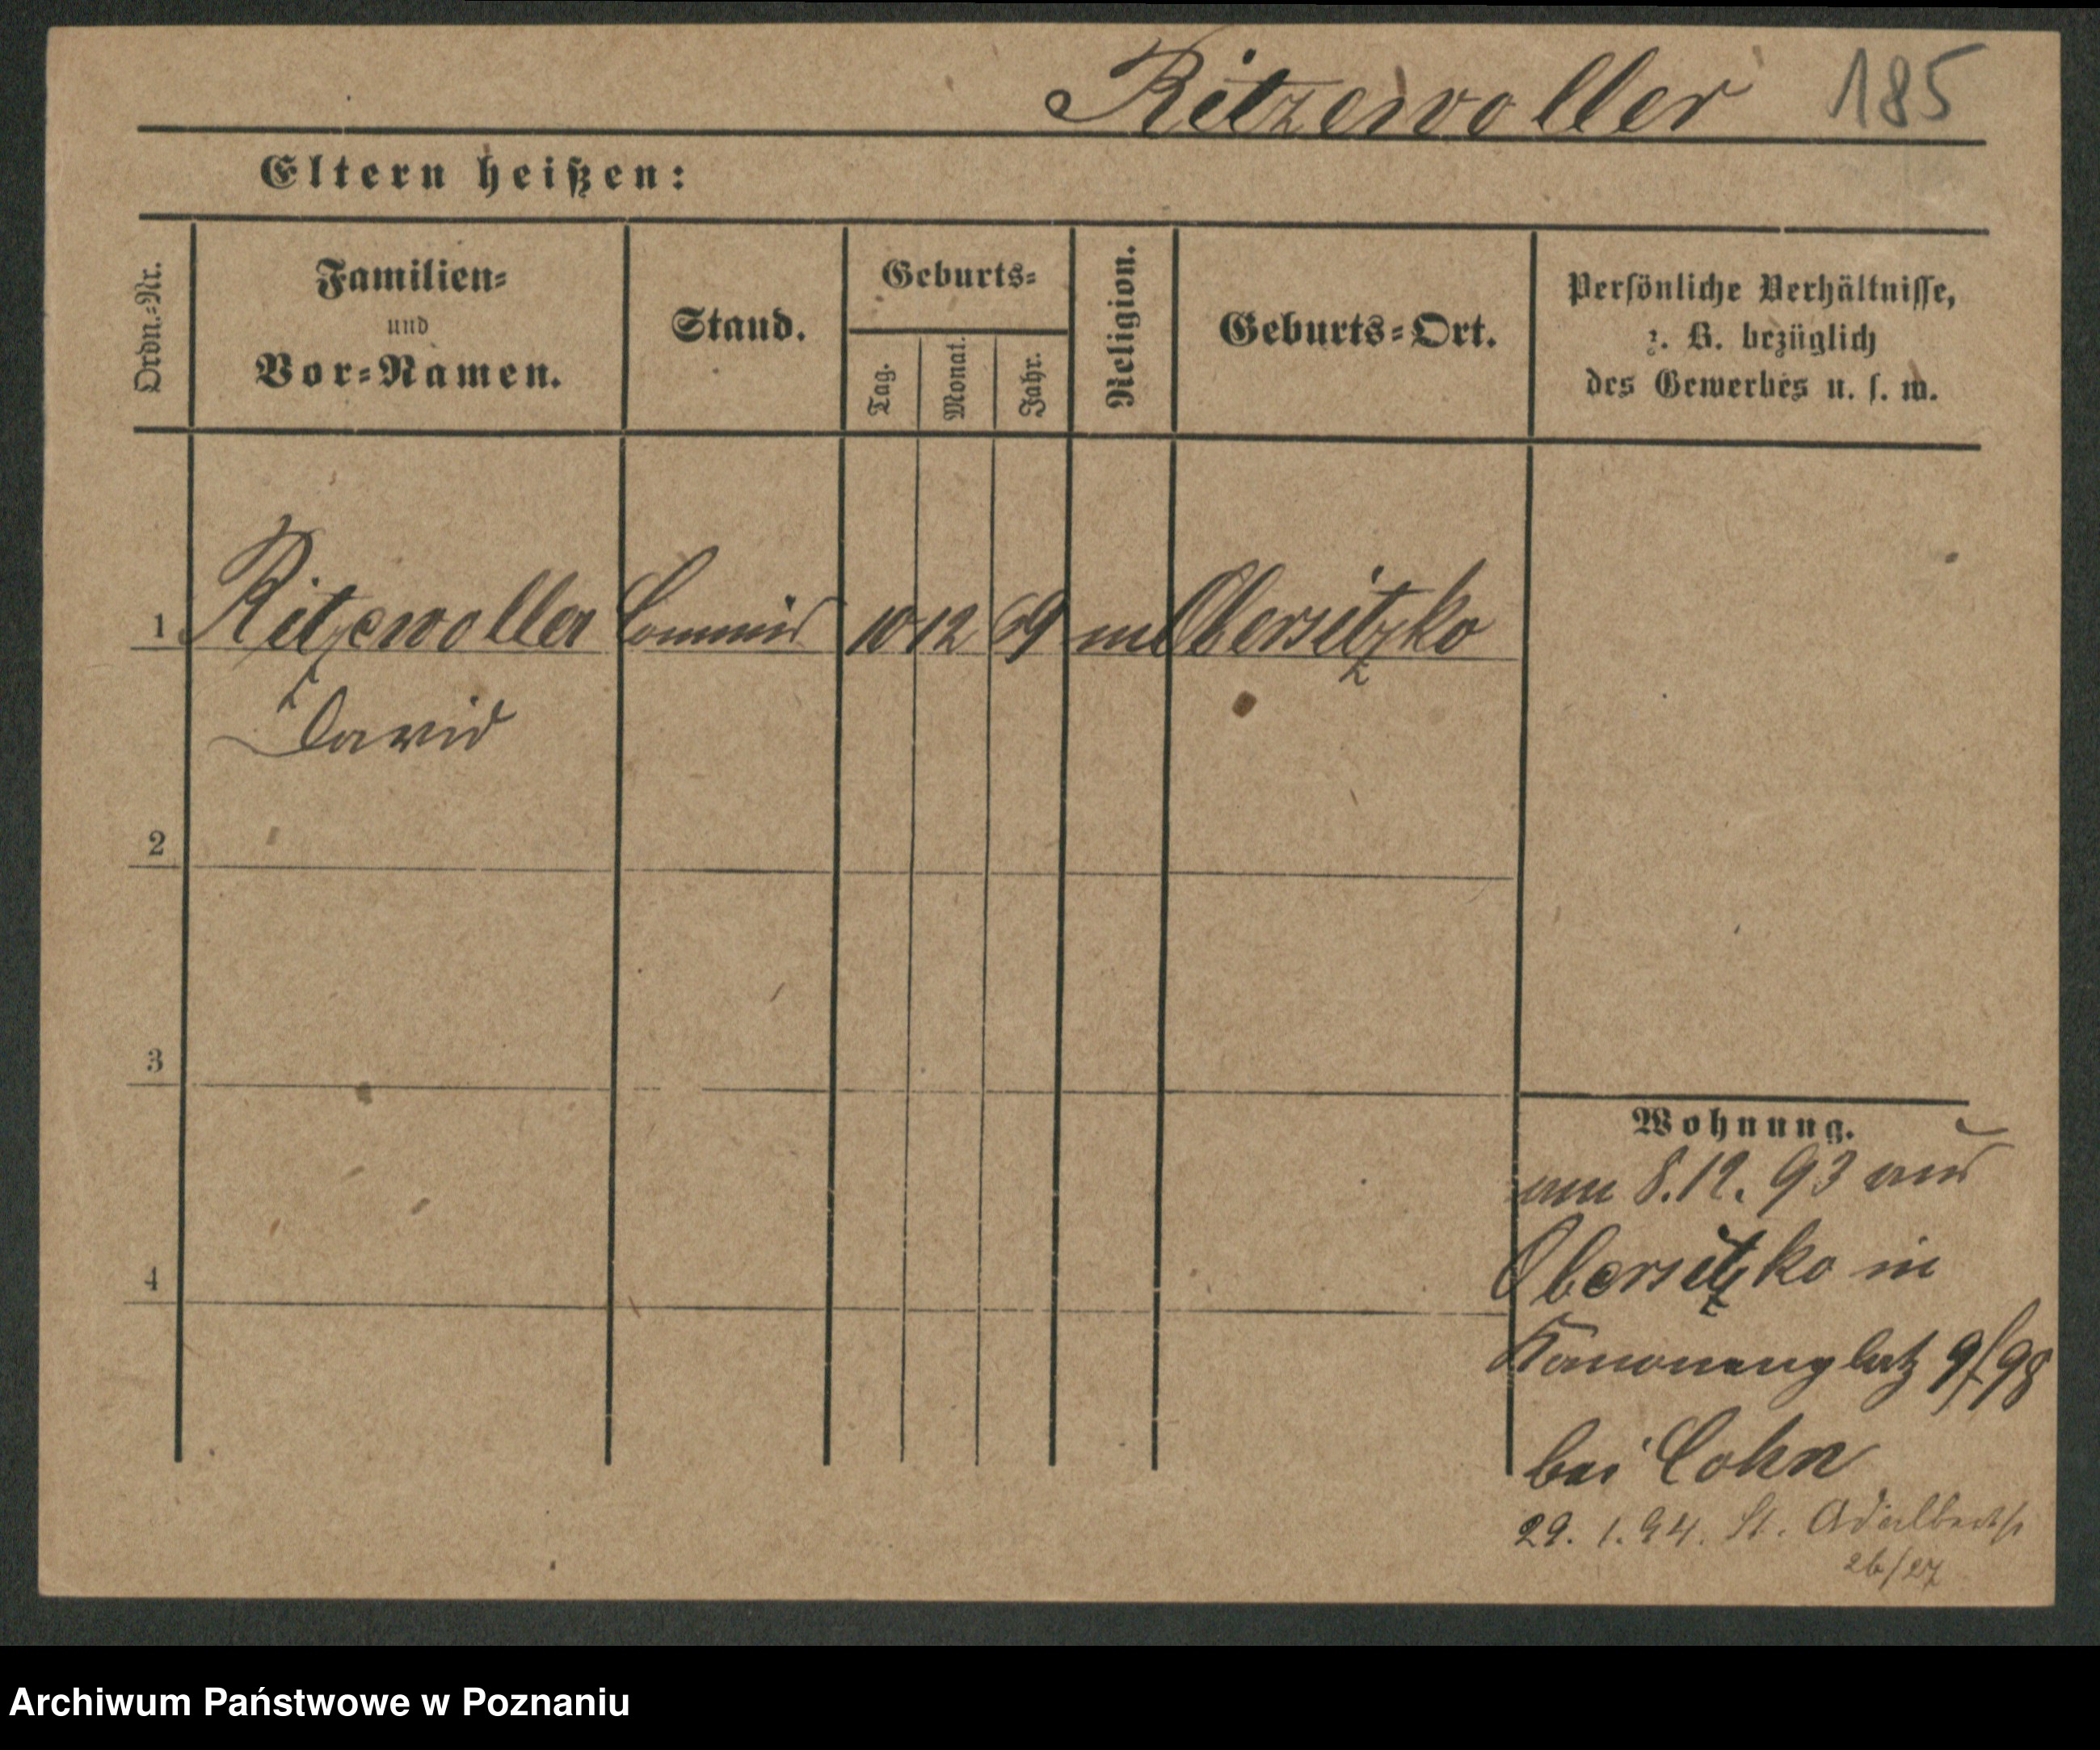 Ritzewoller 185
Eltern heißen:
Ordn.-Nr.
Familien-
und
Vor-Namen.
Stand.
Geburts-
Tag.
Monat.
Jahr.
Religion.
Geburts-Ort.
Persönliche Verhältnisse,
z. B. bezüglich
des Gewerbes u. s. w.
1 Ritzewoller Commis 10 12 69 m Obersitzko
David
2
3
4
Wohnung.
am 8.12.93 aus
Obersitzko in
Kanonenplatz 9/98
bei Cohn
29.1.94. St. Adalbertstr
26/27
Archiwum Państwowe w Poznaniu